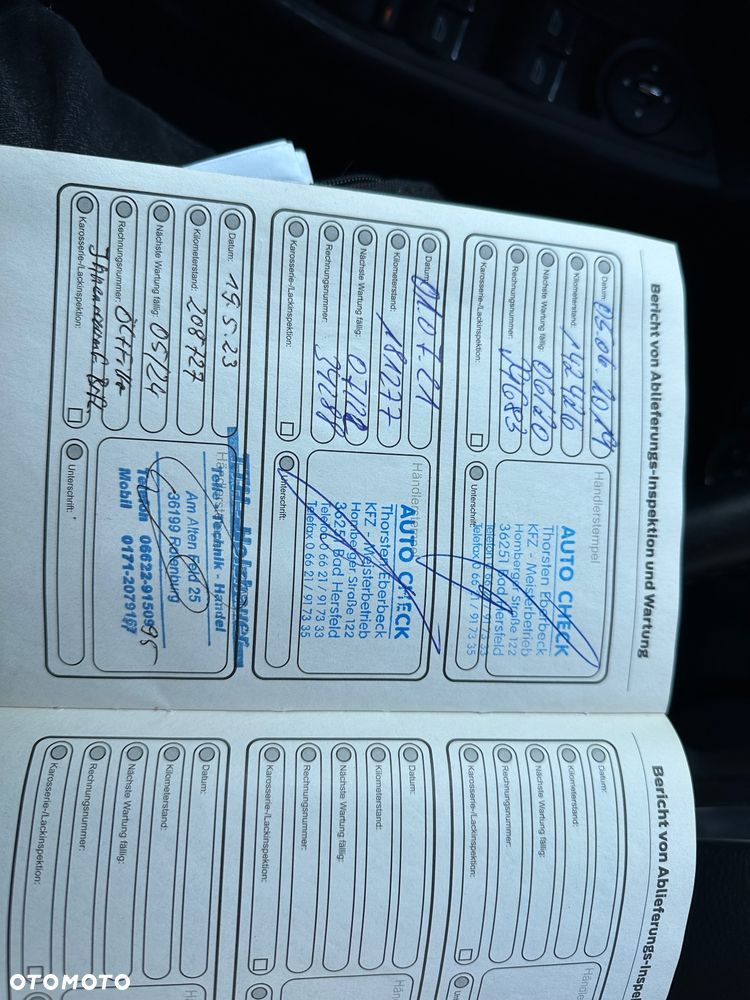 Bericht von Ablieferungs-Inspektion und Wartung
Datum: 05.06.2019
Kilometerstand: 142426
Nächste Wartung fällig: 06/20
Rechnungsnummer:
Karosserie-/Lackinspektion:
Händlerstempel
AUTO CHECK
Thorsten Eberbeck
KFZ - Meisterbetrieb
Homberger Straße 122
36251 Bad Hersfeld
Telefon 0 66 21 / 91 73 33
Telefax 0 66 21 / 91 73 35
Unterschrift:
Datum: 01.07.21
Kilometerstand: 181277
Nächste Wartung fällig:
Rechnungsnummer:
Karosserie-/Lackinspektion:
Händlerstempel
AUTO CHECK
Thorsten Eberbeck
KFZ - Meisterbetrieb
Homberger Straße 122
36251 Bad Hersfeld
Telefon 0 66 21 / 91 73 33
Telefax 0 66 21 / 91 73 35
Unterschrift:
Datum: 19.5.23
Kilometerstand: 208727
Nächste Wartung fällig: 05/24
Rechnungsnummer:
Karosserie-/Lackinspektion:
Teile - Technik - Handel
Am Alten Feld 25
36199 Rotenburg
Telefon 06622-915095
Mobil 0171-2079167
Unterschrift:
Bericht von Ablieferungs-Inspe
Datum:
Kilometerstand:
Nächste Wartung fällig:
Rechnungsnummer:
Karosserie-/Lackinspektion:
Datum:
Kilometerstand:
Nächste Wartung fällig:
Rechnungsnummer:
Karosserie-/Lackinspektion:
Datum:
Kilometerstand:
Nächste Wartung fällig:
Rechnungsnummer:
Karosserie-/Lackinspektion:
OTOMOTO